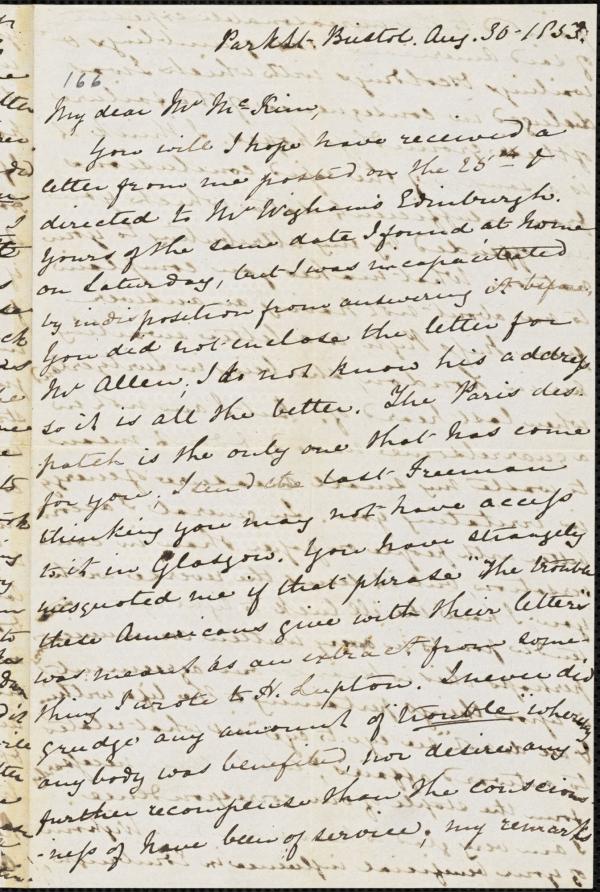 Park St. Bristol. Aug. 30 - 1853.
166
My dear Mr McKim,
You will I hope have received a
letter from me posted on the 25th &
directed to Mr Wigham's Edinburgh.
Yours of the same date I found at home
on Saturday, but I was incapacitated
by indisposition from answering it before.
You did not inclose the letter for
Mr Allen; I do not know his address
so it is all the better. The Paris des-
patch is the only one that has come
for you; I send the last Freeman
thinking you may not have access
to it in Glasgow. You have strangely
misquoted me if that phrase "The trouble
these Americans give with their letters"
was meant as an extract from some-
thing I wrote to H. Lupton. I never did
grudge any amount of trouble whereby
anybody was benefited, nor desire any
further recompense than the conscious-
-ness of have been of service; my remarks